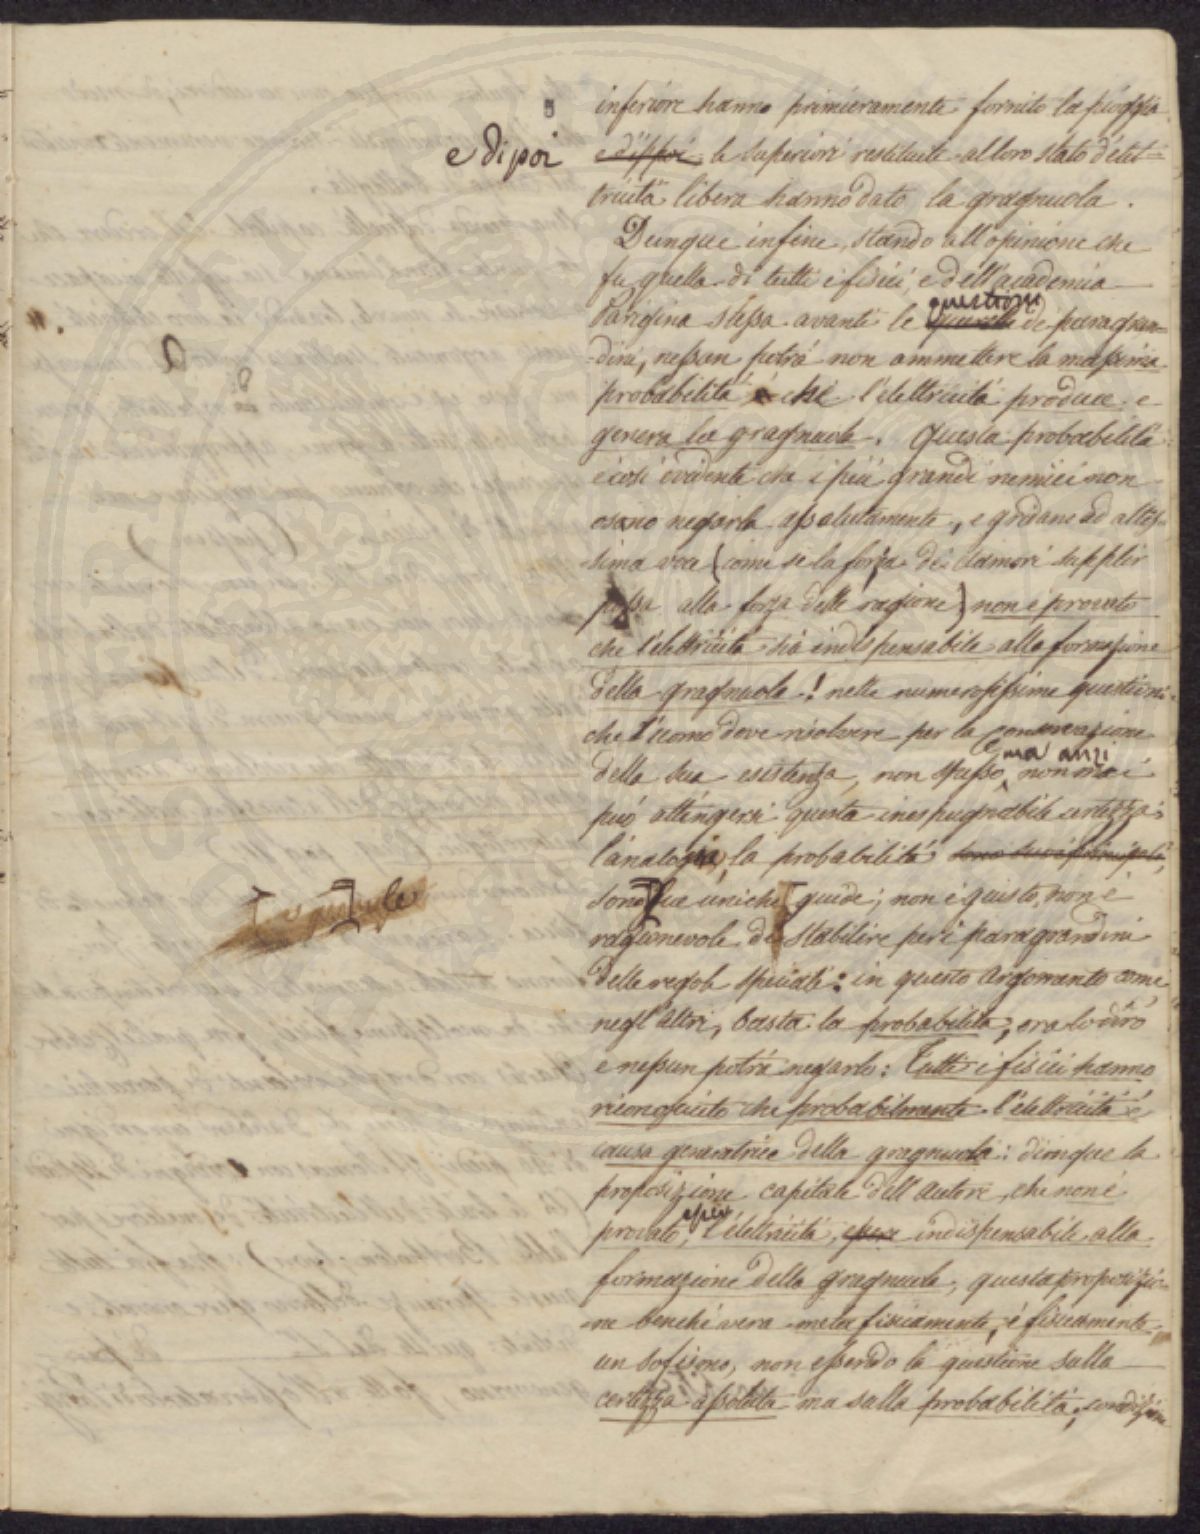 inferiore hanno primieramente fornito la pioggia
e di poi
e dippoi le superiori restituite al loro stato d'elet=
tricità libera hanno dato la gragnuola.
Dunque infine, stando all'opinione che
fu quella di tutti i fisici, e dell'academia
questioni
Parigina stessa avanti le de paragran=
=dini, nessun potrà non ammettere la massima
probabilità che l'elettricità produce e
genera la gragnuola. Questa probabilità
è così evidente che i più grandi nemici non
osano negarla assolutamente, e gridano ad altis=
=sima voce (come se la forza de clamori supplir
possa alla forza della ragione) non è provato
che l'elettricità sia indispensabile alla formazione
della gragnuola! nelle numerosissime questioni
che l'uomo deve risolvere per la conservazione
ma anzi
della sua esistenza, non spesso, non mai
può attingersi questa inespugnabile certezza;
l'analogia, la probabilità
sono le uniche guide; non è giusto, non è
ragionevole di stabilire per i paragrandini
delle regole speciali: in questo argomento come
negl'altri, basta la probabilità, ora lo dirò
e nessun potrà negarlo: Tutti i fisici hanno
riconosciuto che probabilmente l'elettricità è
causa generatrice della gragnuola: dunque la
proposizione capitale dell'Autore, che non è
esser
provato, l'elettricità, essere indispensabile alla
formazione della gragnuola, questa proposizio=
=ne benchè vera metafisicamente, è fisicamente
un sofismo, non essendo la questione sulla
certezza assoluta ma sulla probabilità; condizione